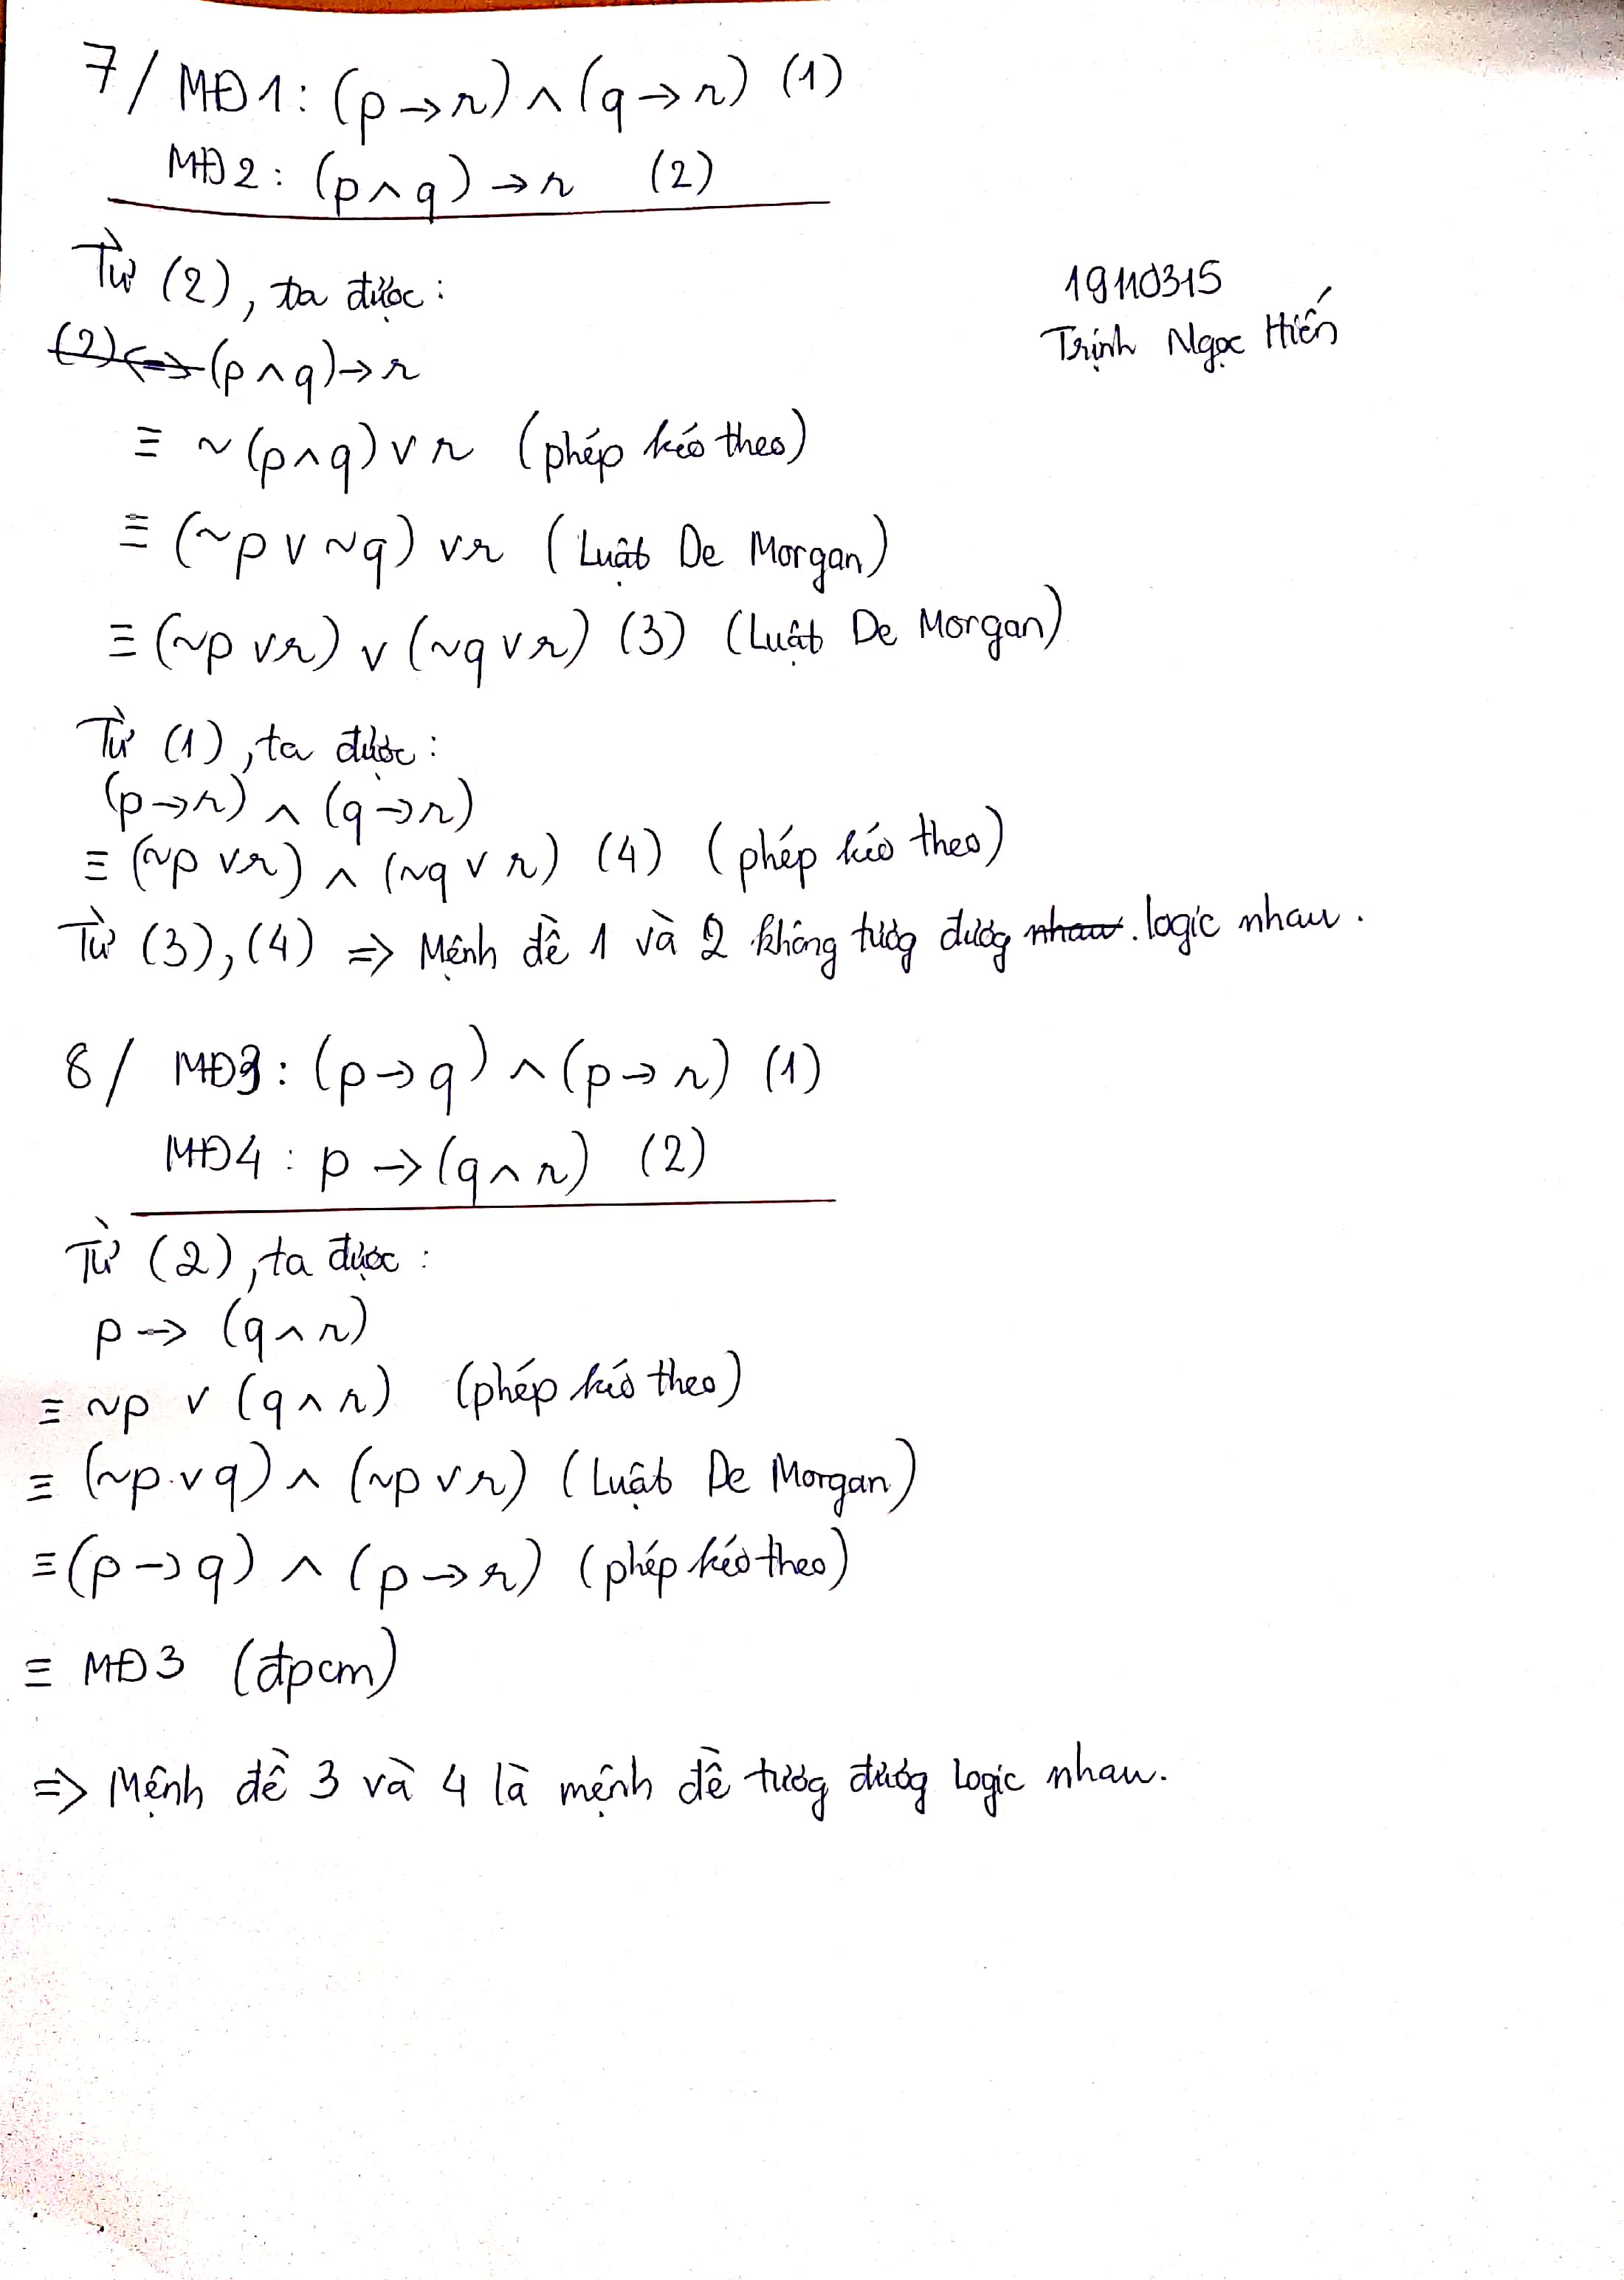 7/ MĐ1: (p→r)∧(q→r) (1)
MĐ2: (p∧q)→r (2)
Từ (2), ta được:
19110315
Trịnh Ngọc Hiến
(2)<=> (p∧q)→r
≡ ~(p∧q)∨r (phép kéo theo)
≡ (~p∨~q)∨r (Luật De Morgan)
≡ (~p∨r)∨(~q∨r) (3) (Luật De Morgan)
Từ (1), ta được:
(p→r)∧(q→r)
≡ (~p∨r)∧(~q∨r) (4) (phép kéo theo)
Từ (3), (4) => Mệnh đề 1 và 2 không tương đương nhau. logic nhau.
8/ MĐ3: (p→q)∧(p→r) (1)
MĐ4: p→(q∧r) (2)
Từ (2), ta được:
p→(q∧r)
≡ ~p∨(q∧r) (phép kéo theo)
≡ (~p∨q)∧(~p∨r) (Luật De Morgan)
≡ (p→q)∧(p→r) (phép kéo theo)
≡ MĐ3 (đpcm)
=> Mệnh đề 3 và 4 là mệnh đề tương đương logic nhau.